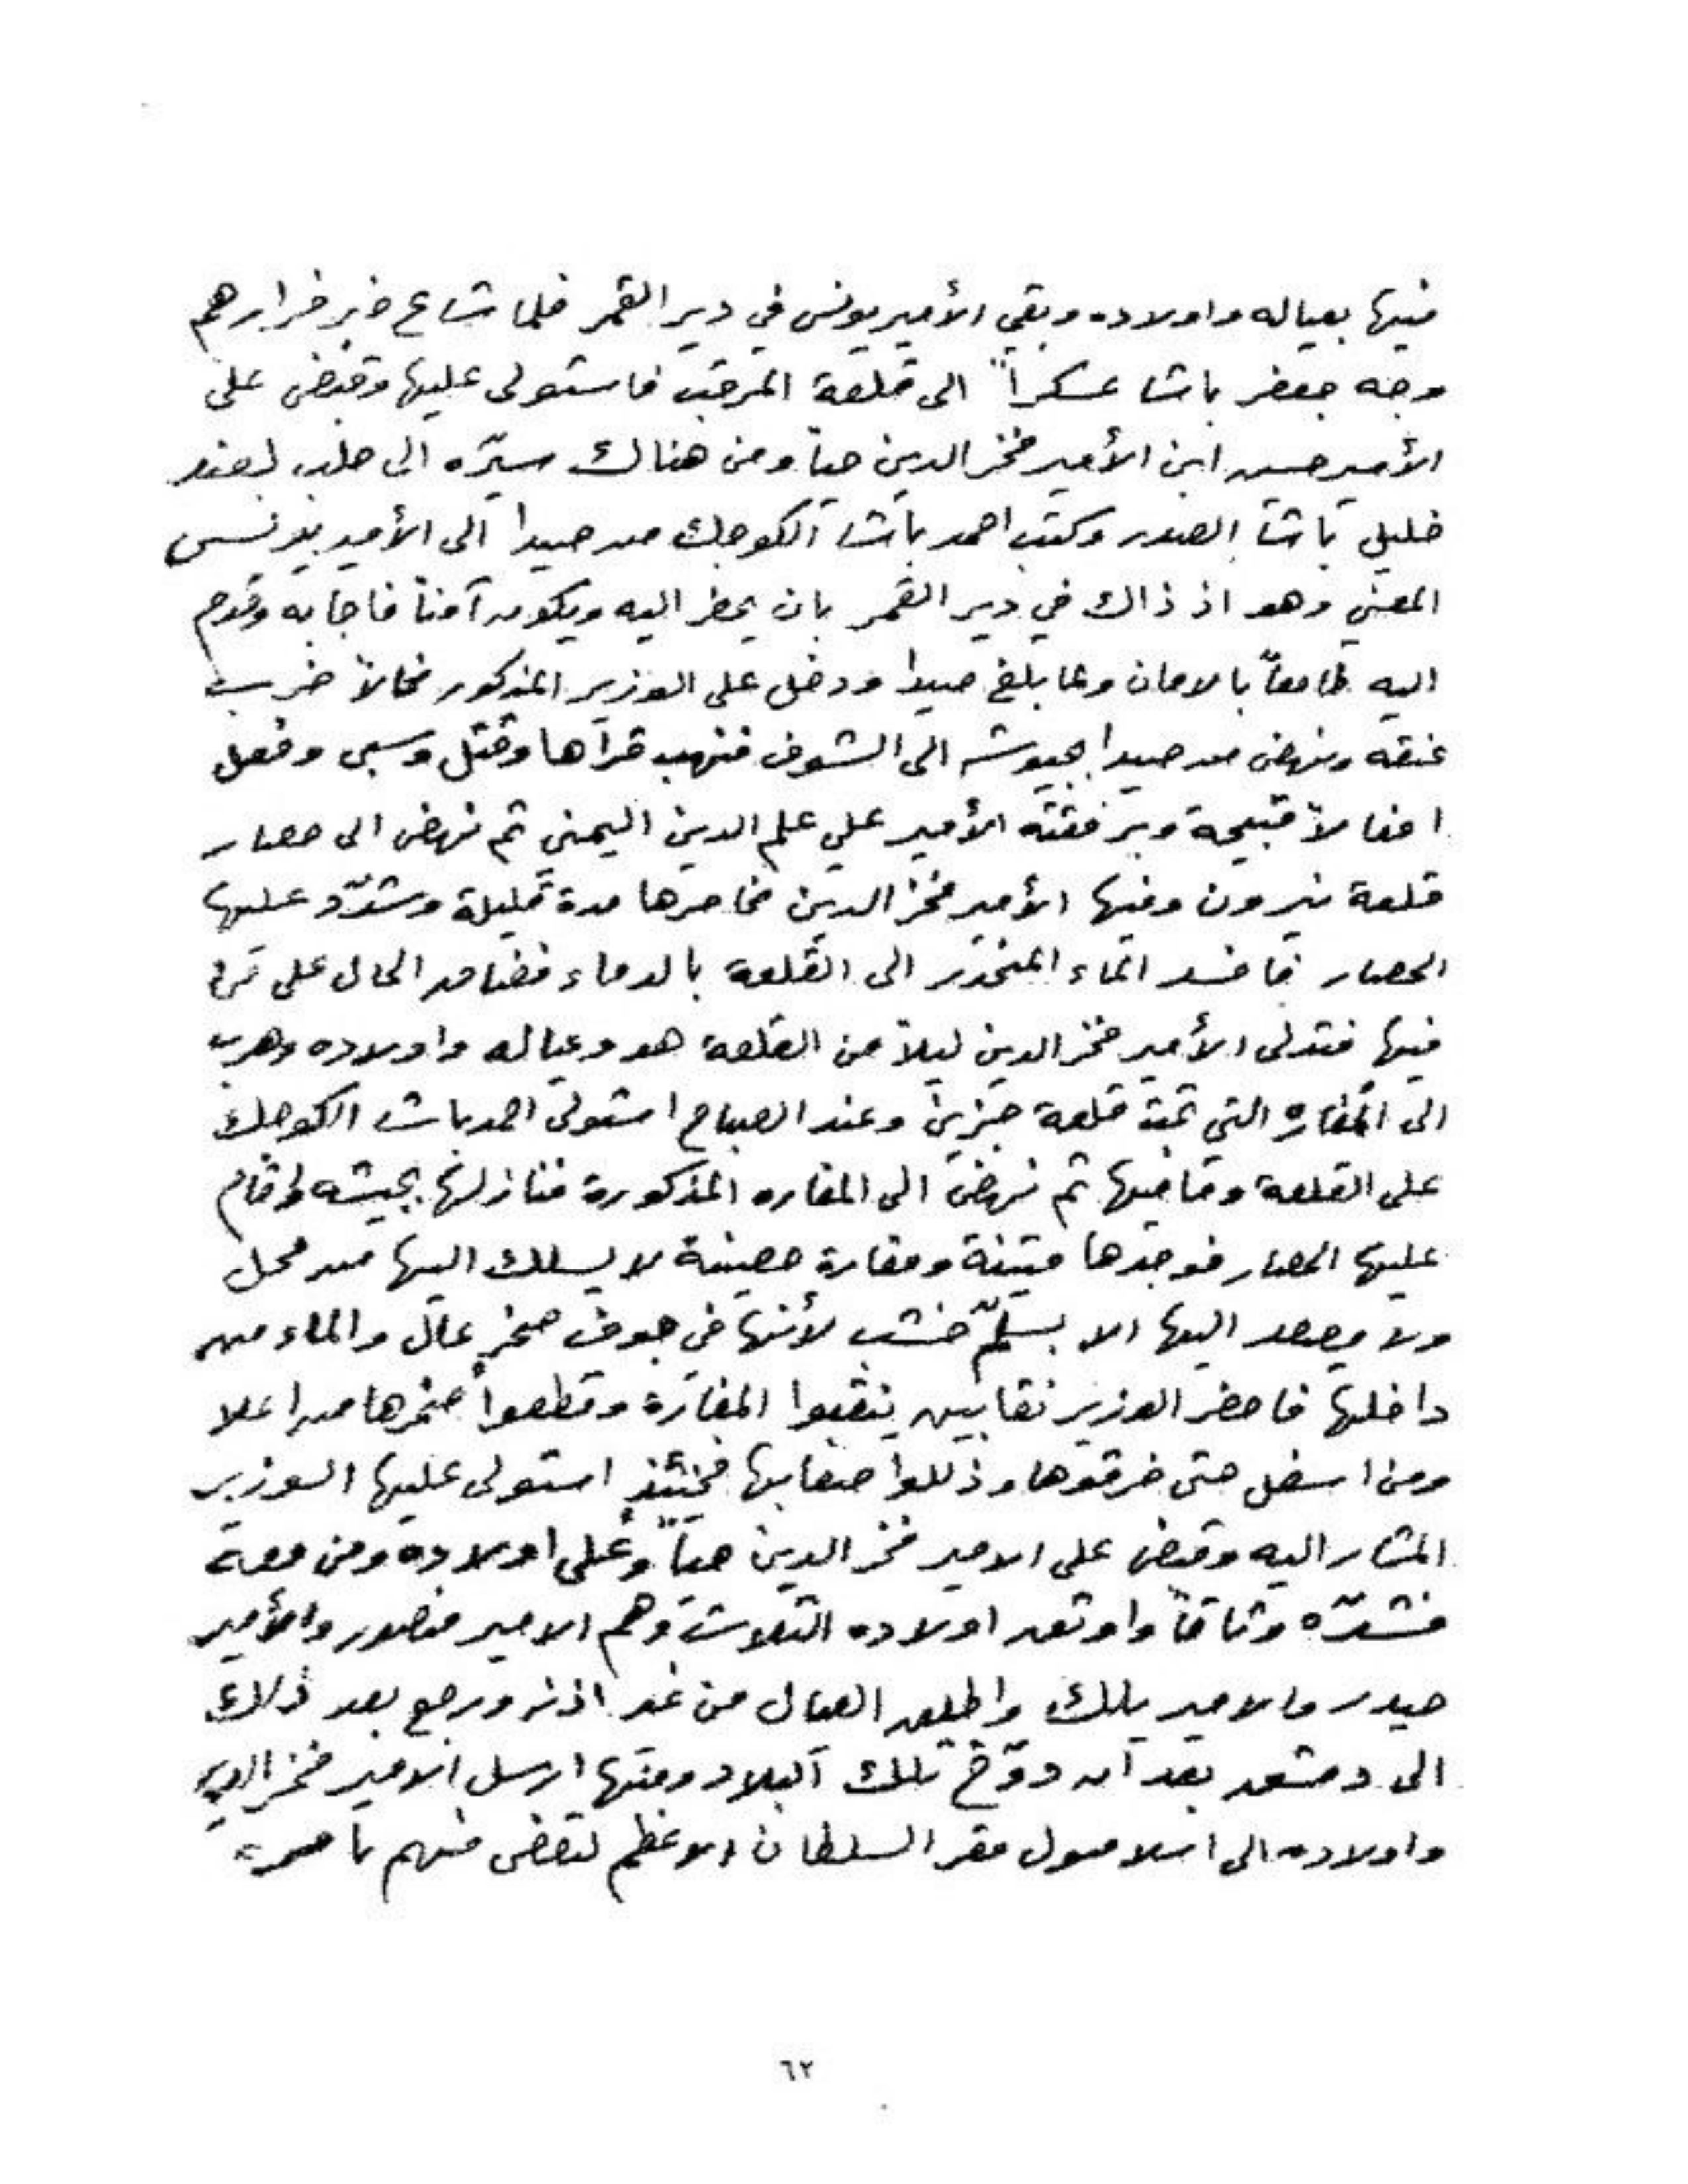 فيها بعياله واولاده وبقي الأمير يونس في دير القمر فلما شاع خبر فرارهم
وجه جعفر باشا عسكراً الى قلعة المرقب فاستولى عليها وقبض على
الأمير حسين ابن الأمير فخر الدين حياً ومن هنالك سيّره الى حلب لعند
خليل باشا الصدر وكتب احمد باشا الكوجك من صيدا الى الأمير يونس
المعني وهو اذ ذاك في دير القمر بان يحضر اليه ويكون آمناً فاجابه وقدم
اليه طامعاً بالامان ولما بلغ صيدا ودخل على الوزير المذكور فحالاً ضرب
عنقه ونهض من صيدا بجيوشه الى الشوف فنهب قراها وقتل وسبى وفعل
افعالاً قبيحة وبرفقته الأمير علي علم الدين اليمني ثم نهض الى حصار
قلعة نيرون وفيها الأمير فخر الدين فحاصرها مدة قليلة وشدّد عليها
الحصار فافسد الماء المنحدر الى القلعة بالدماء فضاق الحال على من
فيها فتدلى الأمير فخر الدين ليلاً من القلعة هو وعياله واولاده وهرب
الى المغاره التي تحت قلعة جزين وعند الصباح استولى احمد باشا الكوجك
على القلعة وما فيها ثم نهض الى المغاره المذكورة فنازلها بجيشه واقام
عليها الحصار فوجدها متينة ومغارة حصينة لا يسلك اليها من محل
ولا يصعد اليها الا بسلّم خشب لأنها في جوف صخر عالٍ والماء من
داخلها فاحضر الوزير نقابين ينقبوا المغارة وقطعوا صخرها من اعلا
ومن اسفل حتى خرقوها وذللوا صعابها فحينئذٍ استولى عليها الوزير
المشار اليه وقبض على الامير فخر الدين حياً وعلى اولاده ومن معه
فشدّه وثاقاً واوثق اولاده الثلاث وهم الامير منصور والأمير
حيدر والامير بلك واطلق العيال من غير اذنه ورجع بعد ذلك
الى دمشق بعد ان دوّخ تلك البلاد ومنها ارسل الامير فخر الدين
واولاده الى اسلامبول مقر السلطان الاعظم ليقضى فيهم بامره
٦٢